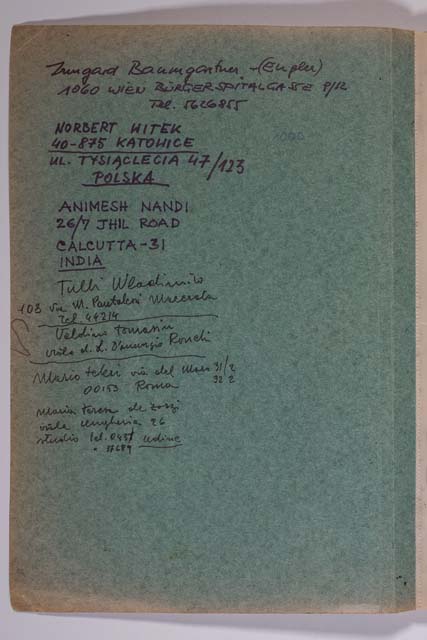 Irmgard Baumgartner - (Engler)
1060 WIEN BÜRGERSPITALGASSE 8/12
Tel. 5626855
NORBERT WITEK
40-875 KATOWICE
UL. TYSIĄCLECIA 47/123
POLSKA
ANIMESH NANDI
26/7 JHIL ROAD
CALCUTTA-31
INDIA
Tulli Wladimiro
103 via M. Pantaleoni Macerata
Tel. 44214
Valdino Tomasin
viale d. L. D'Annunzio Ronchi
Mario via del Mare 31/2
32 2
00153 Roma
Maria Teresa de Zorzi
viale Ungheria 26
studio tel. 0432 Udine